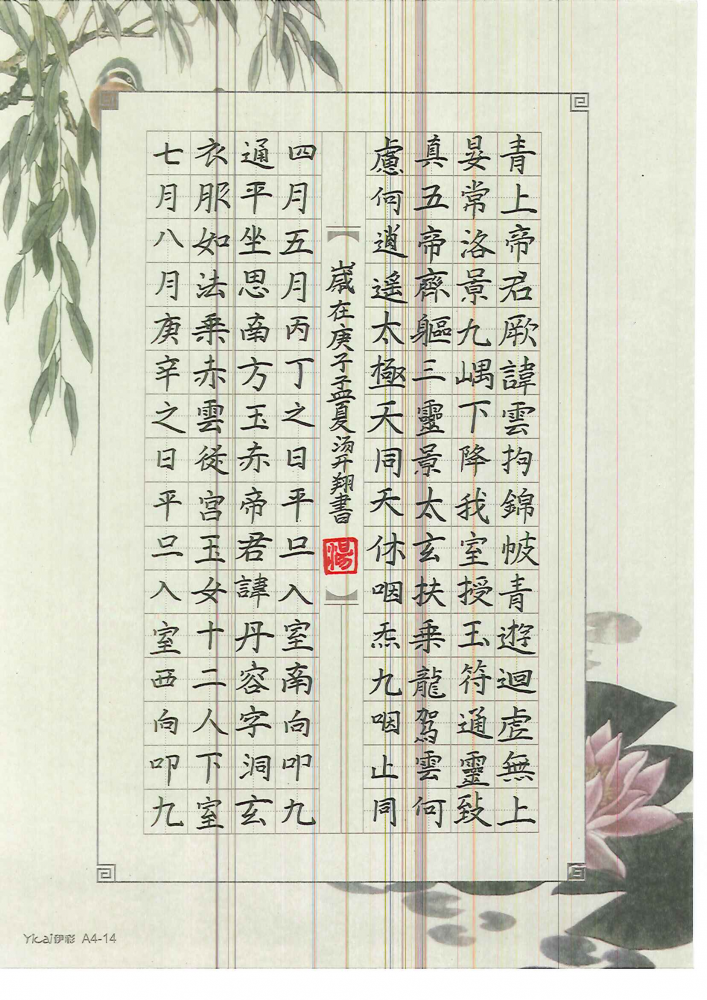 青上帝君厥諱雲拘錦帔青遊迴虛無上
晏常洛景九嵎下降我室授玉符通靈致
真五帝齊軀三靈景太玄扶乘龍駕雲何
慮何逍遙太極天同天休咽炁九咽止同
歲在庚子孟夏湯开翔書
四月五月丙丁之日平旦入室南向叩九
通平坐思南方玉赤帝君諱丹容字洞玄
衣服如法乘赤雲從宮玉女十二人下室
七月八月庚辛之日平旦入室西向叩九
Yicai伊彩 A4-14